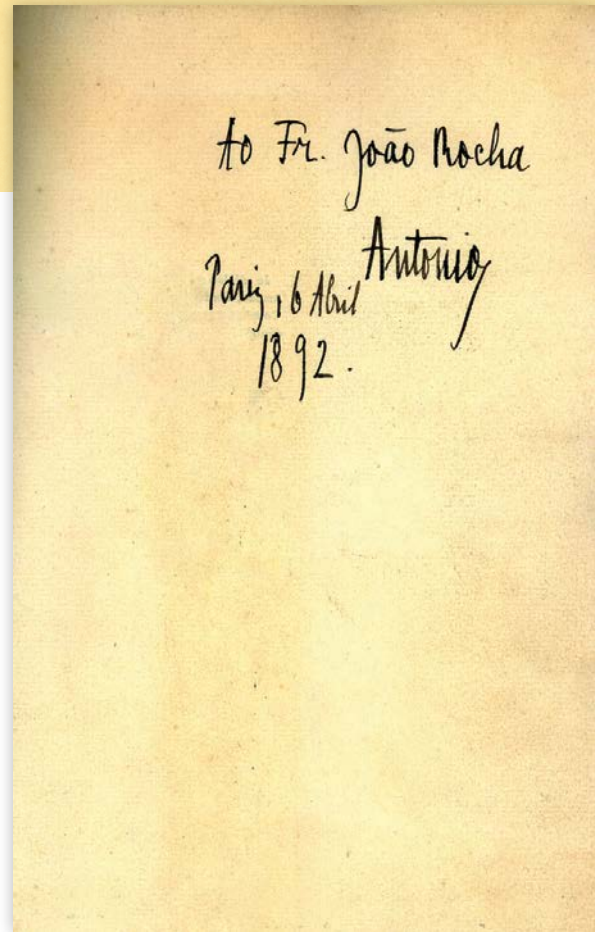 Ao Fr. João Rocha
Antonio
Pariz, 6 Abril
1892.